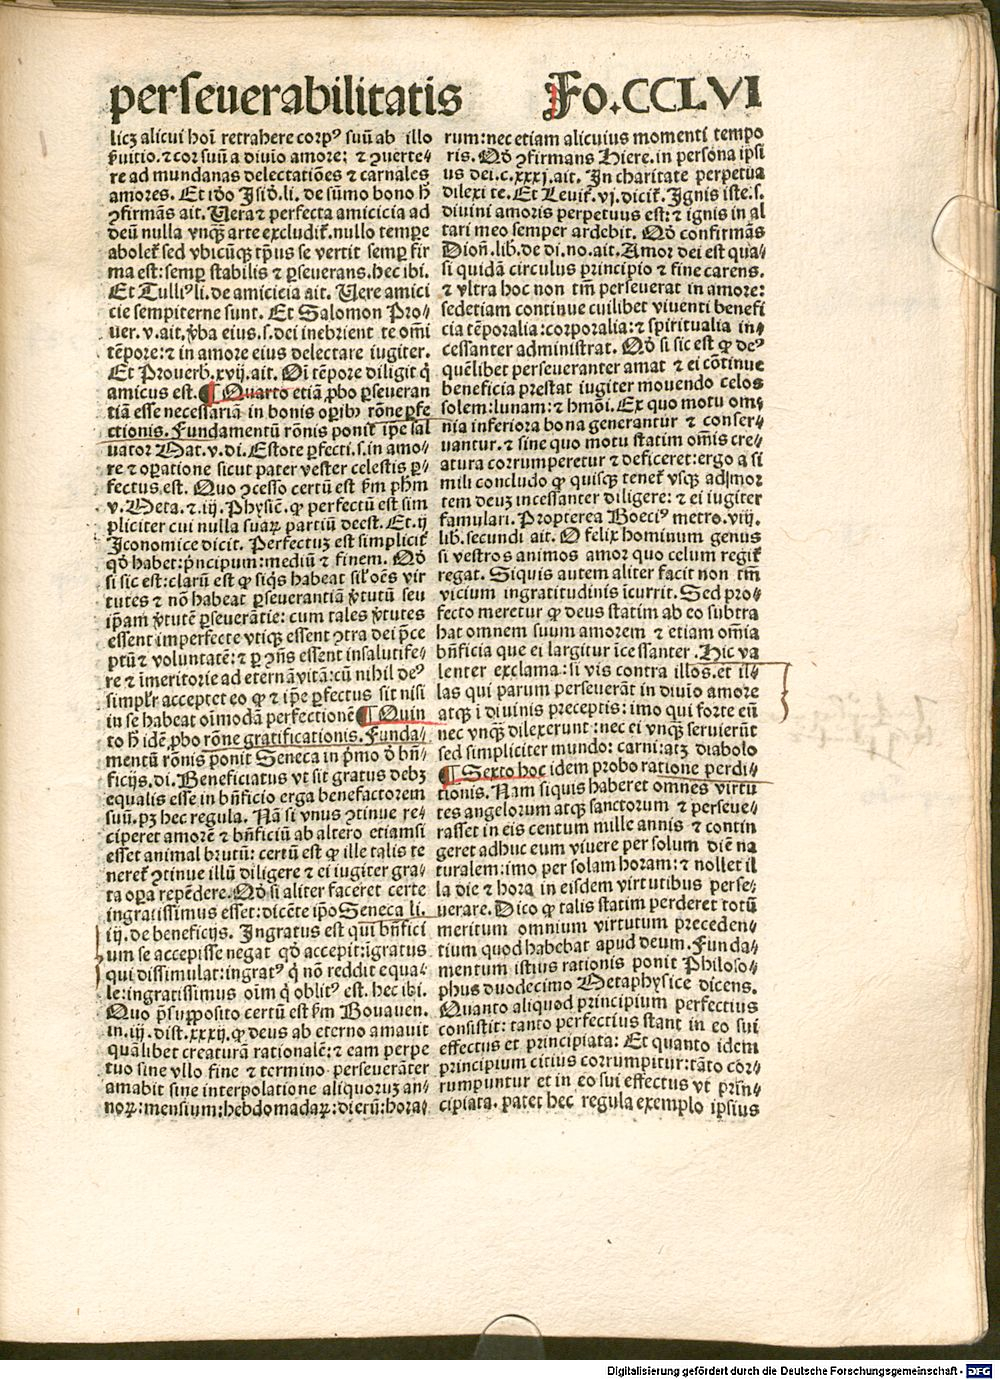 perseuerabilitatis Fo.CCLVI
licꝫ alicui hoı̃ retrahere corpꝰ suũ ab illo
ẜuitio.⁊ cor suũ a diuio amore: ⁊ ꝯuerte⸗
re ad mundanas delectatiões ⁊ carnales
amores. Et iõo Isiõ.li. de sũmo bono h̃
ꝯfirmãs ait. Uera ⁊ perfecta amicicia ad
deũ nulla vnq̃ꝫ arte excludit᷑.nullo tempe
abolet᷑ sed vbicũqꝫ tp̃us se vertit semꝑ fir
ma est:semꝑ stabilis ⁊ ꝑseuerans.hec ibi.
Et Tulliꝰ li.de amicicia ait. Uere amici
cie sempiterne sunt. Et Salomon Pro⸗
uer.v.ait.ṽba eius.s.dei inebrient te om̃i
tẽpore:⁊ in amore eius delectare iugiter.
Et Prouerb̃.xvij.ait. Oı̃ tẽpore diligit q̃
amicus est.¶ Quarto etiã ꝓbo ꝑseueran
tiã esse necessariã in bonis oꝑibꝫ rõne ꝑfe
ctionis. Fundamentũ rõnis ponit ip̃e sal
uator Mat.v.di.Estote ꝑfecti.s.in amo⸗
re ⁊ oꝑatione sicut pater vester celestis ꝑ⸗
fectus est. Quo ꝯcesso certũ est ẜm pħm
v.Meta.⁊.iij.Physic̃.ꝙ perfectũ est sim
pliciter cui nulla suaꝝ partiũ deest. Et.ij
Iconomice dicit. Perfectuꝫ est simplicit᷑
qõ habet:p̃ncipum:mediũ ⁊ finem. Qõ
si sic est:clarũ est ꝙ siq̃s habeat sil᷑ oẽs vir
tutes ⁊ nõ habeat ꝑseuerantiã ṽtutũ seu
ip̃am ṽtutẽ ꝑseuerãtie: cum tales ṽtutes
essent imperfecte vtiqꝫ essent ꝯtra dei p̃ce
ptũ ⁊ voluntatẽ:⁊ ꝑ ꝯñs essent insalutife⸗
re ⁊ ı̃meritorie ad eternã vitã:cũ nihil deꝰ
simplr̃ acceptet eo ꝙ ⁊ ip̃e ꝑfectus sit nisi
in se habeat oı̃modã perfectionẽ ¶ Quin
to h̃ idẽ ꝓbo rõne gratificationis. Funda⸗
mentũ rõnis ponit Seneca in p̃mo õ bñ⸗
ficijs.di. Beneficiatus vt sit gratus debꝫ
equalis esse in bñficio erga benefactorem
suũ.pꝫ hec regula. Nã si vnus ꝯtinue re⸗
ciperet amorẽ ⁊ bñficiũ ab altero etiamsi
esset animal brutũ: certũ est ꝙ ille talis te
neret᷑ ꝯtinue illũ diligere ⁊ ei iugiter gra⸗
ta oꝑa repẽdere. Qõ si aliter faceret certe
ingratissimus esset:dicẽte ip̃o Seneca li.
iij.de beneficijs. Ingratus est qui bñfici
um se accepisse negat qõ accepit:ı̃gratus
qui dissimulat:ingratꝰ q̃ nõ reddit equa⸗
le:ingratissimus oı̃m q̃ oblitꝰ est.hec ibi.
Quo p̃supposito certũ est ẜm Bouauen.
in.iij.dist.xxxij.ꝙ deus ab eterno amauit
quãlibet creaturã rationalẽ:⁊ eam perpe
tuo sine vllo fine ⁊ termino perseuerãter
amabit sine interpolatione aliquoruꝫ an⸗
noꝝ:mensium:hebdomadaꝝ:dierũ:hora⸗
rum:nec etiam alicuius momenti tempo
ris. Qõ ꝯfirmans Hiere.in persona ipsi
us dei.c.xxxj.ait. In charitate perpetua
dilexi te.Et Leuit᷑.vj.dicit᷑.Ignis iste.s.
diuini amoris perpetuus est:⁊ ignis in al
tari meo semper ardebit. Qõ confirmãs
Dioñ.lib.de di.no.ait.Amor dei est qua⸗
si quidã circulus principio ⁊ fine carens.
⁊ vltra hoc non tm̃ perseuerat in amore:
sed etiam continue cuilibet viuenti benefi
cia tẽporalia:corporalia:⁊ spiritualia in⸗
cessanter administrat. Qõ si sic est ꝙ deꝰ
quẽlibet perseueranter amat ⁊ ei cõtinue
beneficia prestat iugiter mouendo celos
solem:lunam:⁊ hmõi. Ex quo motu om⸗
nia inferiora bona generantur ⁊ conser⸗
uantur.⁊ sine quo motu statim om̃is cre⸗
atura corrumperetur ⁊ deficeret:ergo a si
mili concludo ꝙ quisqꝫ tenet᷑ vsqꝫ ad mor
tem deuꝫ incessanter diligere: ⁊ ei iugiter
famulari. Propterea Boeciꝰ metro.viij.
lib.secundi ait. O felix hominum genus
si vestros animos amor quo celum regit᷑
regat. Siquis autem aliter facit non tm̃
vicium ingratitudinis icurrit. Sed pro⸗
fecto meretur ꝙ deus statim ab eo subtra
hat omnem suum amorem ⁊ etiam om̃ia
bñficia que ei largitur icessanter.Hic va
lenter exclama:si vis contra illos.et il⸗
las qui parum perseuerãt in diuio amore
atqꝫ i diuinis preceptis: imo qui forte eũ
nec vnq̃ꝫ dilexerunt:nec ei vnq̃ꝫ seruierũt
sed simpliciter mundo: carni:atꝫ diabolo
¶ Sexto hoc idem probo ratione perdi⸗
tionis. Nam siquis haberet omnes virtu
tes angelorum atqꝫ sanctorum ⁊ perseue⸗
rasset in eis centum mille annis ⁊ contin
geret adhuc eum viuere per solum diẽ na
turalem:imo per solam horam:⁊ nollet il
la die ⁊ hora in eisdem virtutibus perse⸗
uerare. Dico ꝙ talis statim perderet totũ
meritum omnium virtutum preceden⸗
tium quod habebat apud deum. Funda⸗
mentum istius rationis ponit Philoso⸗
phus duodecimo Metaphysice dicens.
Quanto aliquod principium perfectius
consistit: tanto perfectius stant in eo sui
effectus et principiata: Et quanto idem
principium citius corrumpitur:tãto cor⸗
rumpuntur et in eo sui effectus vt prĩn⸗
cipiata. patet hec regula exemplo ipsius
Digitalisierung gefördert durch die Deutsche Forschungsgemeinschaft - DFG